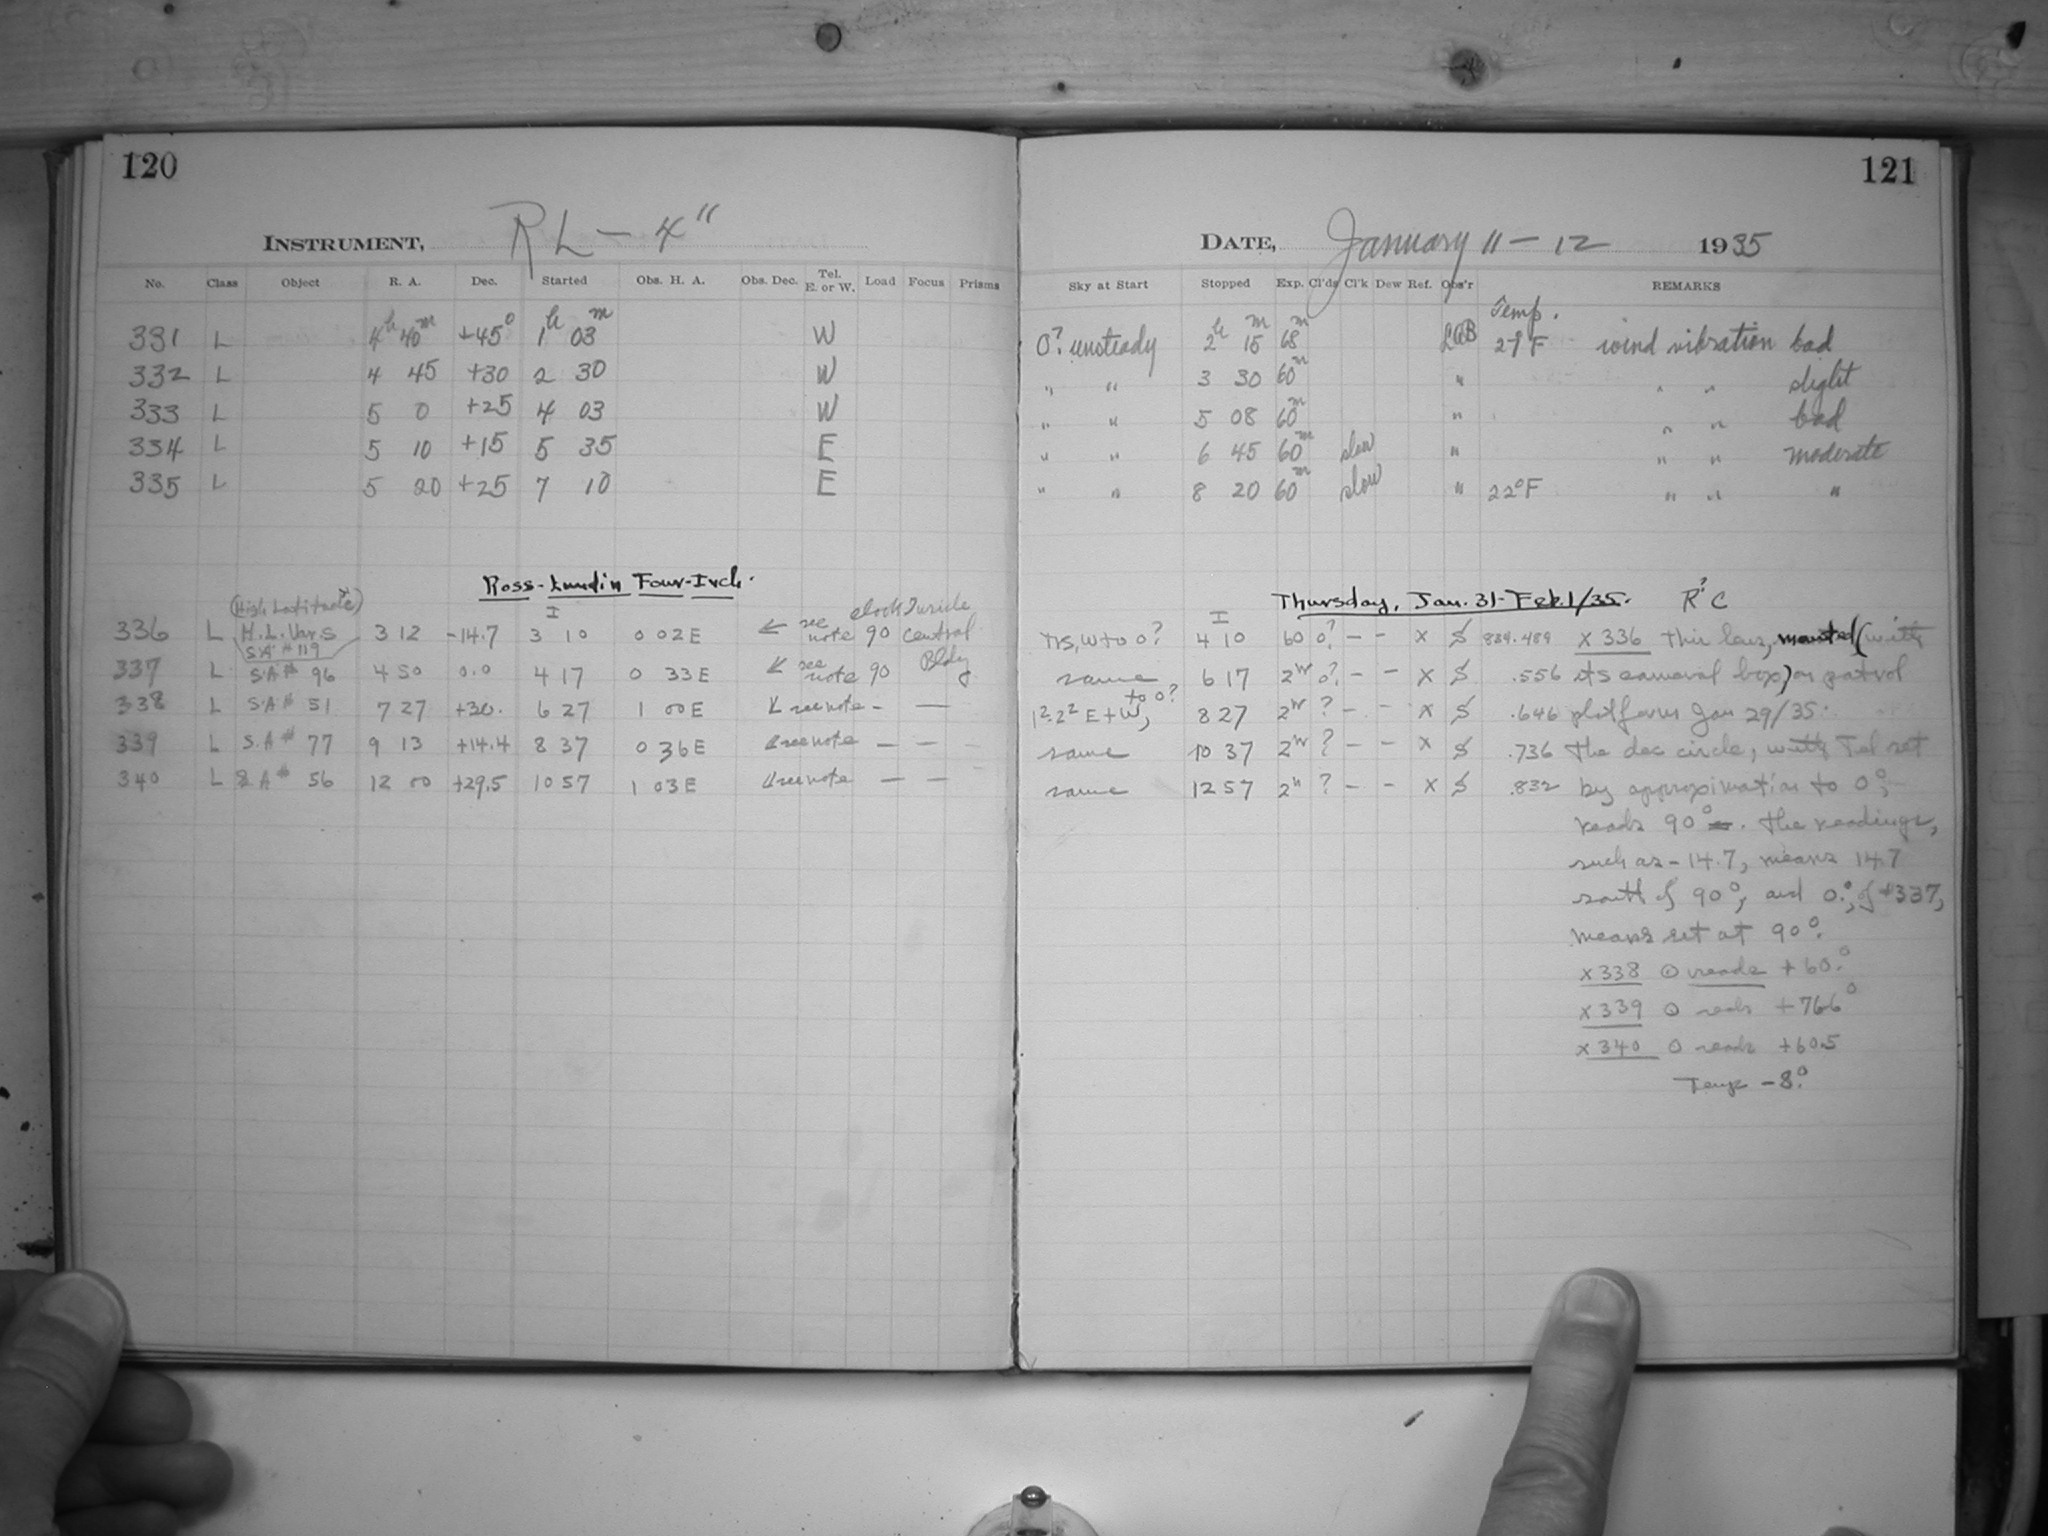 120
INSTRUMENT, RL - 4"
No. Class Object R. A. Dec. Started Obs. H. A. Obs. Dec. Tel. E. or W. Load Focus Prisms
331 L 4h 40m +45° 1h 03m W
332 L 4 45 +30 2 30 W
333 L 5 0 +25 4 03 W
334 L 5 10 +15 5 35 E
335 L 5 20 +25 7 10 E
Ross-Lundin Four-Inch.
(High Latitude) I clock Inside
336 L H.L. Vars 3 12 -14.7 3 10 0 02E ← see note 90 central
S.A # 119
337 L S.A# 96 4 50 0.0 4 17 0 33E ← see note 90 Bldg
338 L S.A# 51 7 27 +30. 6 27 1 00E ← see note - —
339 L S.A# 77 9 13 +14.4 8 37 0 36E ← see note — —
340 L S.A# 56 12 00 +29.5 10 57 1 03E ← see note — —
121
DATE, January 11-12 1935
Sky at Start Stopped Exp. Cl'ds Cl'k Dew Ref. Obs'r REMARKS
Temp.
0? unsteady 2h 15m 68m wind vibration bad
" " 3 30 60m " " " slight
" " 5 08 60m " " " bad
" " 6 45 60m slow " " " moderate
" " 8 20 60m slow " 22°F " " "
Thursday, Jan. 31-Feb.1/35.
I
to 0? 4 10 60 0? - - x × 336 This lens, mounted (with
same 6 17 0? - - x .556 its cameral box) on patrol
1222 E+W, to 0? 8 27 ? - - x .646 platform Jan 29/35.
same 10 37 ? - - x .736 The dec circle, with Tel set
same 12 57 ? - - x .832 by approximation to 0°,
reads 90°. The readings,
such as -14.7, means 14.7
south of 90°, and 0.°, of #337,
means set at 90°.
×338 0 reads +60.°
×339 0 reads +76.6°
×340 0 reads +60.5
Temp -8.°